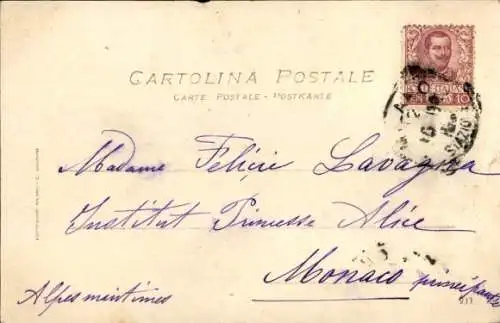 CARTOLINA POSTALE
CARTE POSTALE - POSTKARTE
10
Madame Felicie Lavagna
Institut Princesse Alice
Monaco
Alpes maritimes